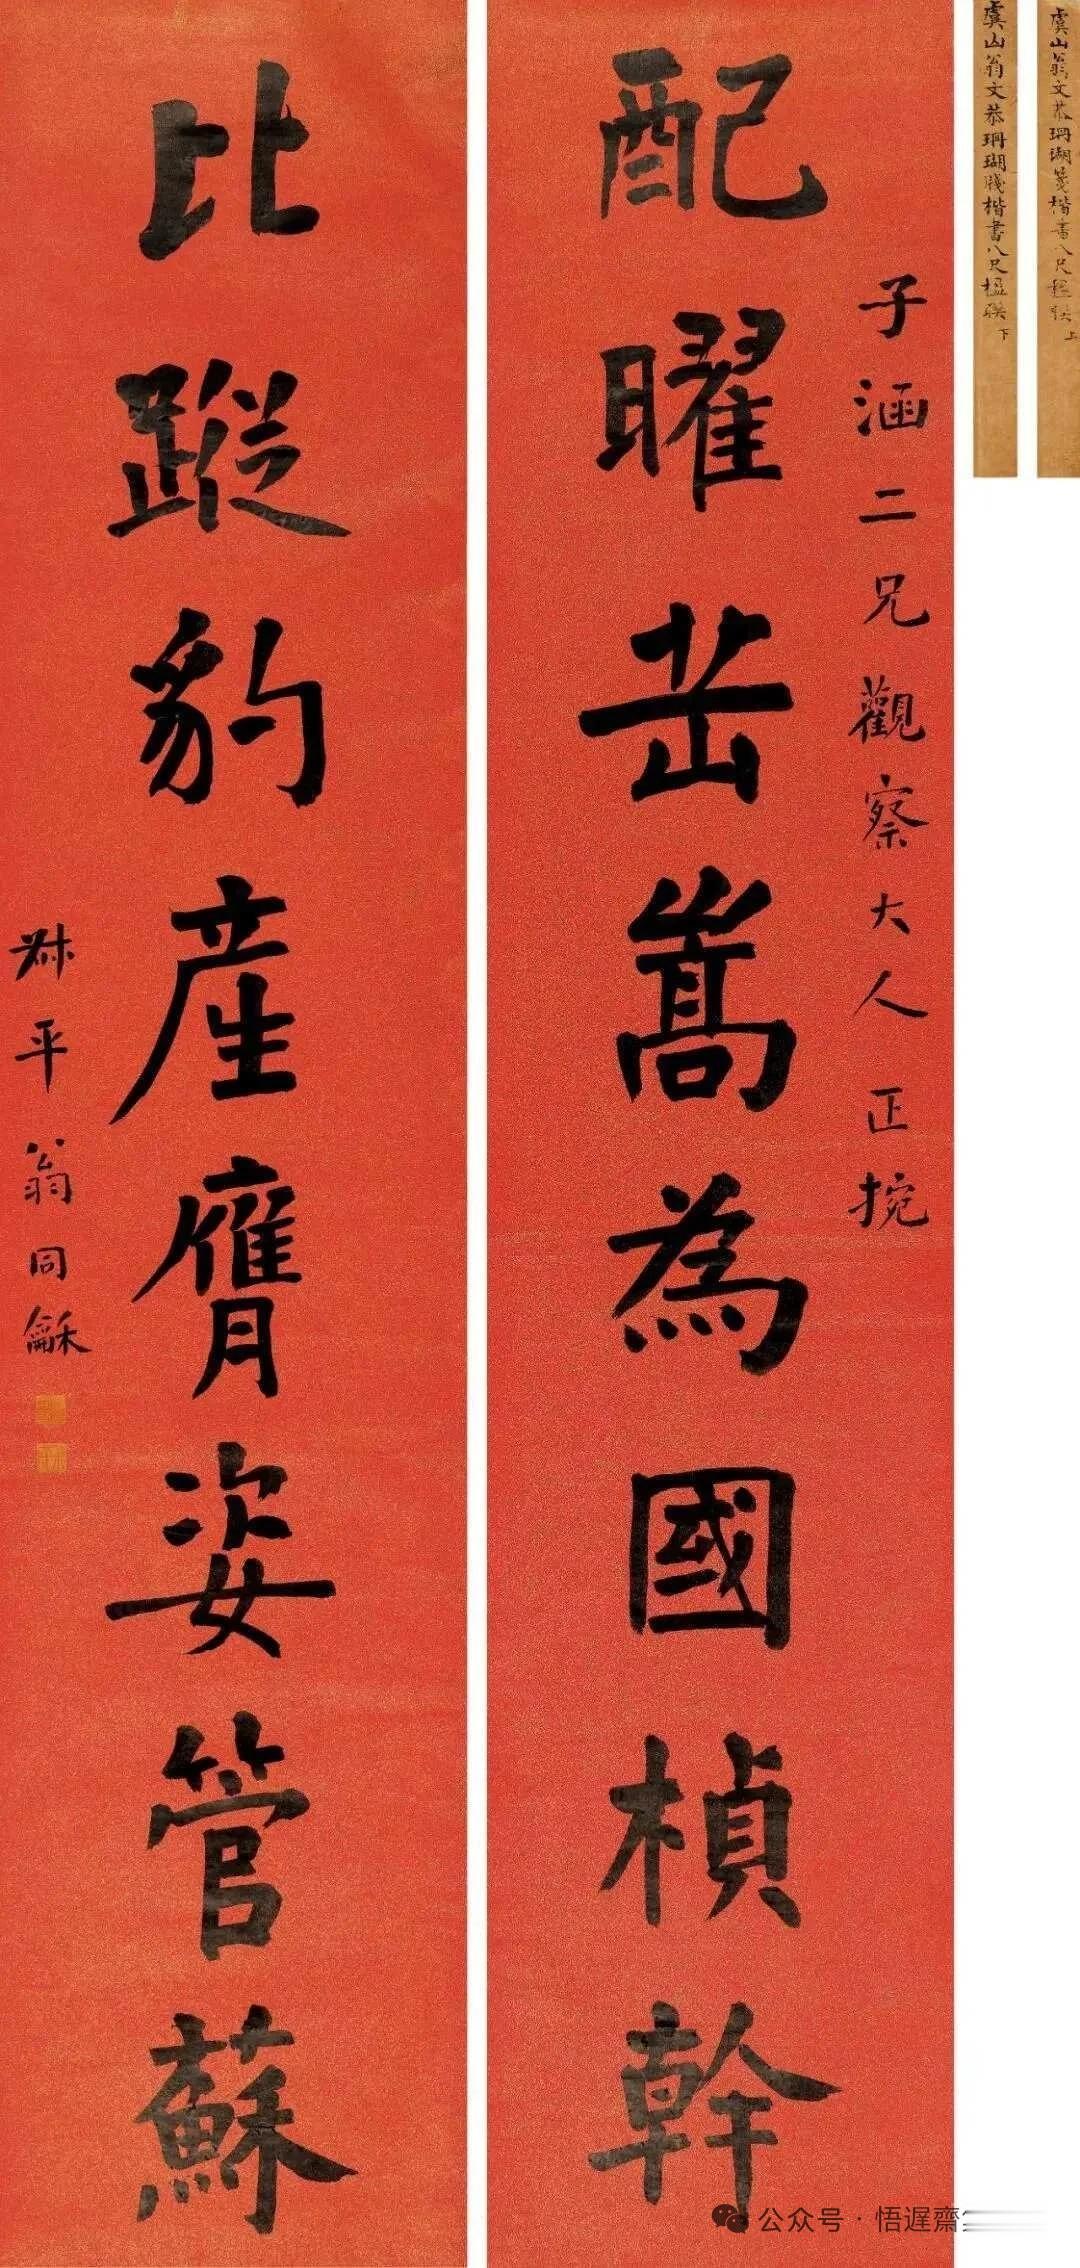 虞山翁文恭珊瑚箋楷書八尺楹联 上
虞山翁文恭珊瑚牋楷書八尺楹联 下
子涵二兄觀察大人正捥
配曜岳嵩為國楨幹
比蹤豹產膺姿管蘇
叔平翁同龢
公众号·悟遲齋